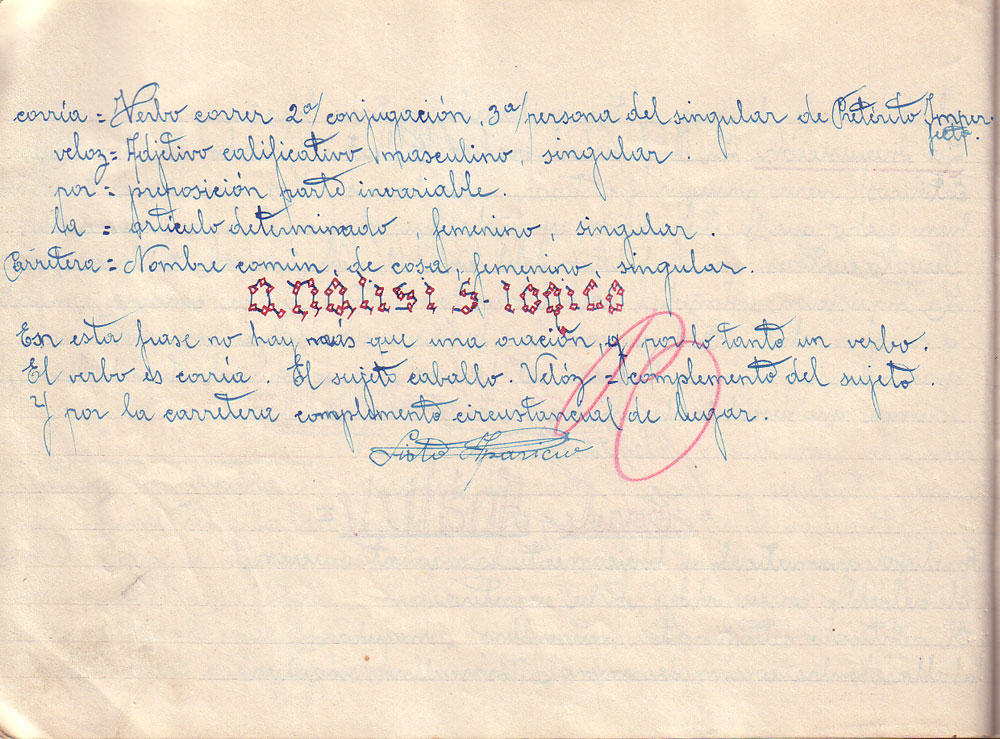 corría = Verbo correr 2ª/ conjugación, 3ª/ persona del singular de Pretérito Imperfecto.
veloz = Adjetivo calificativo masculino singular.
por = preposición parte invariable
la = artículo determinado, femenino, singular.
Carretera = Nombre común, de cosa, femenino, singular.
analisis-logico
En esta frase no hay más que una oración, y por lo tanto un verbo.
El verbo es corría. El sujeto caballo. Velóz = complemento del sujeto.
Y por la carretera complemento circustancial de lugar.
Sixto Aparicio